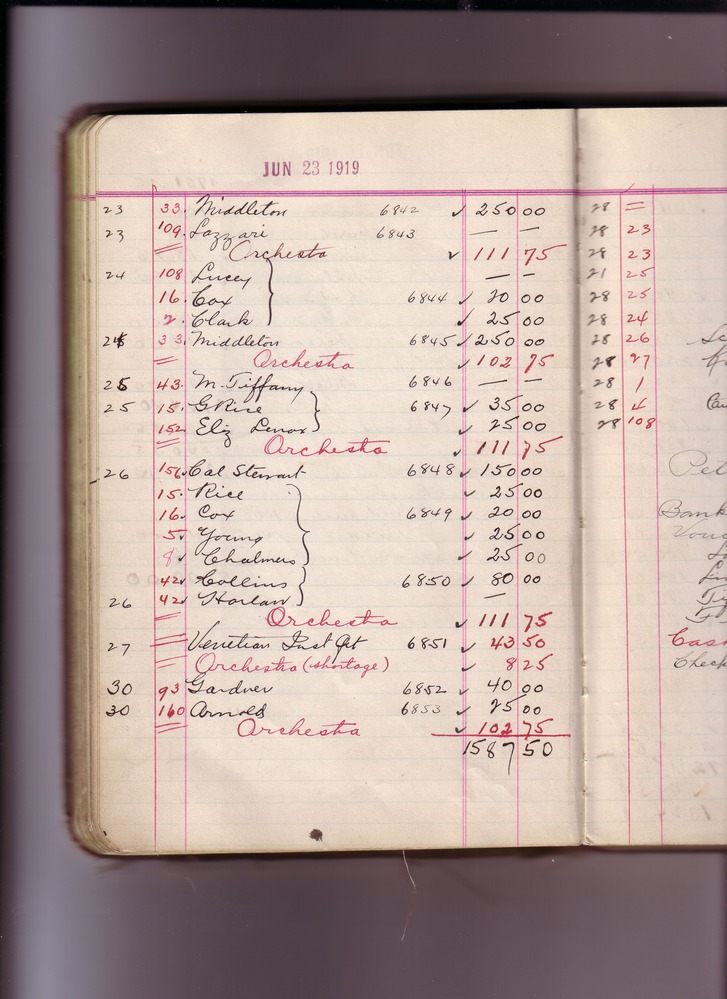 JUN 23 1919
23 33. Middleton 6842 ✓ 250 00
23 109. Lazzari 6843 — —
= Orchestra ✓ 111 75
24 108 Lucey — —
16. Cox 6844 ✓ 20 00
2. Clark ✓ 25 00
24 33. Middleton 6845 ✓ 250 00
= Orchestra ✓ 102 75
25 43. M. Tiffany 6846 — —
25 15. G Rice 6847 ✓ 35 00
152 Eliz Lenox ✓ 25 00
= Orchestra ✓ 111 75
26 156 Cal Stewart 6848 ✓ 150 00
15. Rice 25 00
16. Cox 6849 ✓ 20 00
5 Young ✓ 25 00
8 Chalmers ✓ 25 00
42 Collins 6850 ✓ 80 00
26 42 Harlan —
= Orchestra ✓ 111 75
27 = Venetian Inst Qt 6851 ✓ 43 50
= Orchestra (shortage) ✓ 8 25
30 93 Gardner 6852 ✓ 40 00
30 160 Arnold 6853 ✓ 25 00
= Orchestra ✓ 102 75
1587 50
28 =
28 23
28 23
21 25
28 25
28 24
28 26
28 27
28 1
28 4
28 108
Pet
Bank
Vouc
Cash
Check